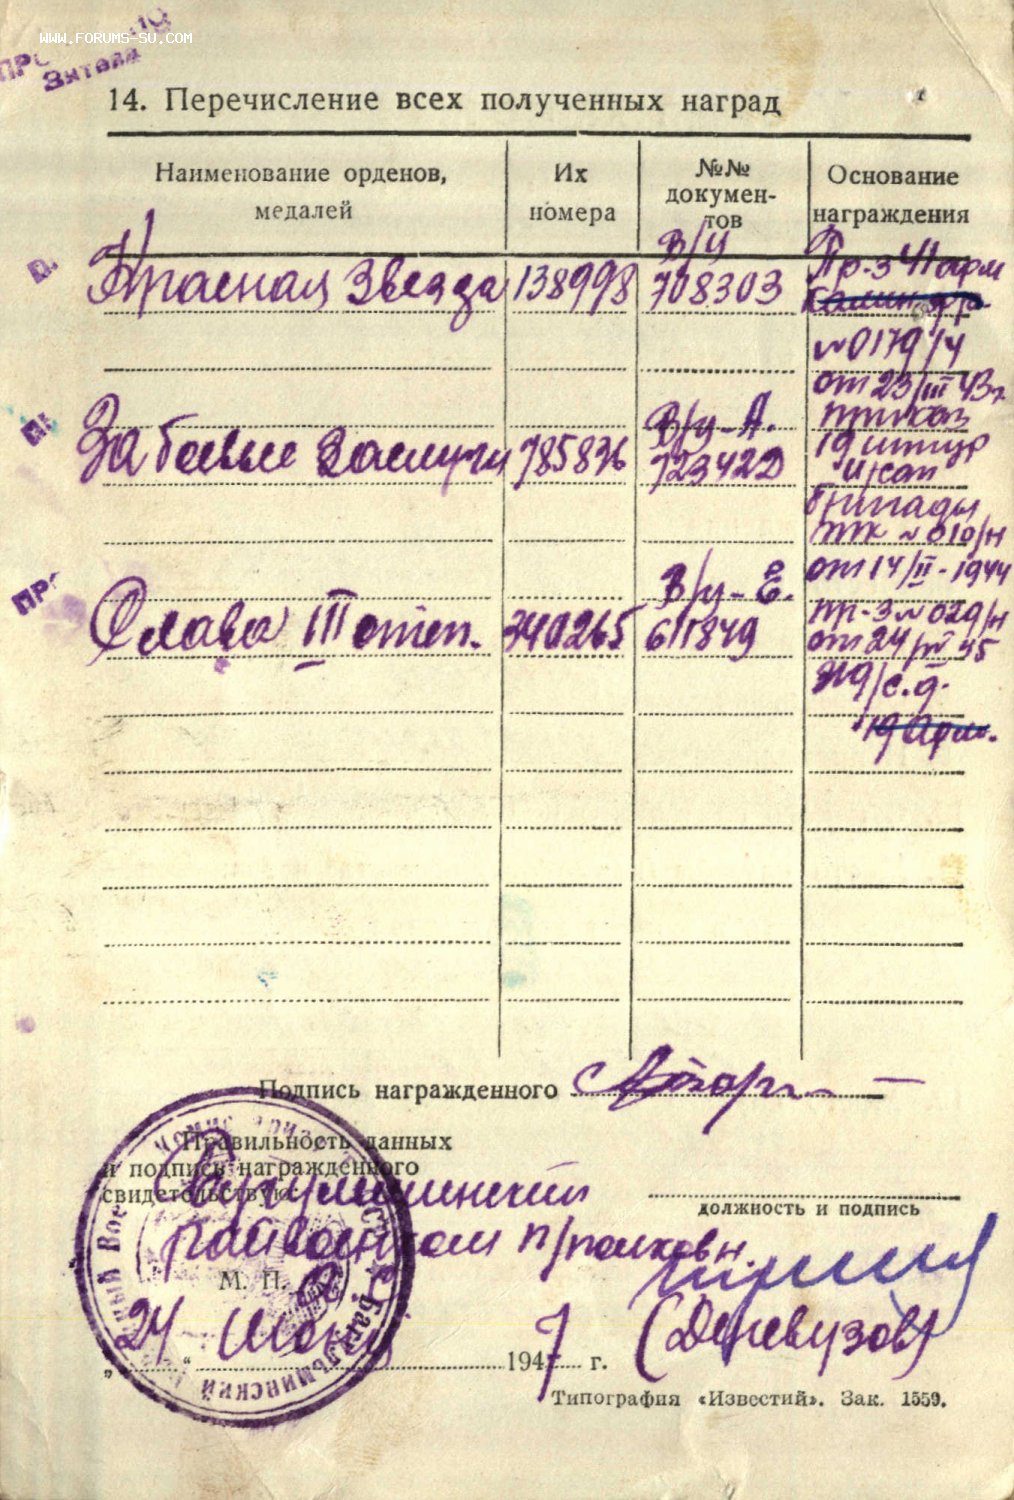 WWW.FORUMS-SU.COM
14. Перечисление всех полученных наград
Наименование орденов, медалей
Их номера
№№ докумен-тов
Основание награждения
Красная Звезда 138998 В/Ц 708303 Пр-з 41 арм
№ 0179/Ч
от 23/III 43г
За боевые Заслуги 785836 В/ц-А. 723420 приказ
19 штур
бригады
№ 010/н
от 14/II-1944
Слава III степ. 340265 В/ц-Е. 611849 пр-з № 029/н
от 24/IV 45
с.д.
19 Арм.
Подпись награжденного
Правильность данных
и подпись награжденного
свидетельствую
должность и подпись
Бугульминский
райвоенком п/полковн.
М. П.
24 Июня 1947 г.
Типография «Известий». Зак. 1559.